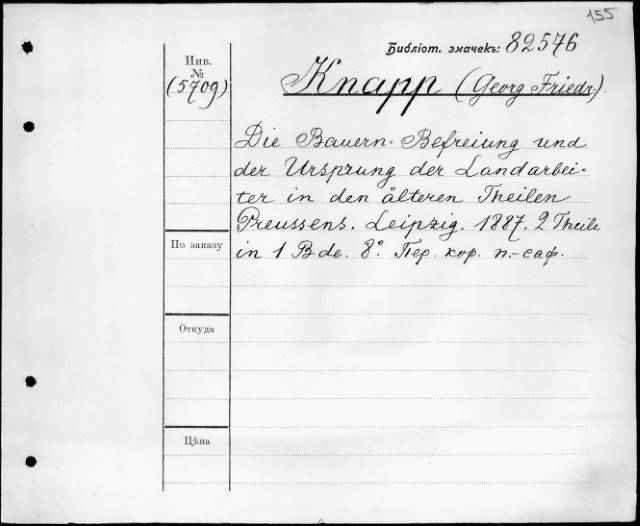 155
Библіот. значекъ: 82576
Инв.
№
(5709)
Knapp (Georg Friedr.)
Die Bauern-Befreiung und
der Ursprung der Landarbei-
ter in den älteren Theilen
Preussens. Leipzig. 1887. 2 Theile
in 1 Bde. 8º. Пер. кор. п.-саф.
По заказу
Откуда
Цѣна